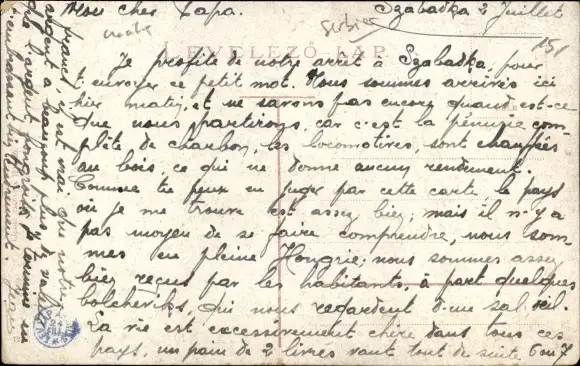 Mon cher Papa.
Szabadka 2 Juillet
Serbie
151
LEVELEZŐ-LAP
Je profite de notre arrêt à Szabadka, pour
t'envoyer ce petit mot. Nous sommes arrivés ici
hier matin, et ne savons pas encore quand est-ce
que nous partirons, car c'est la pénurie com-
plète de charbon, les locomotives, sont chauffés
au bois, ce qui ne donne aucun rendement.
Comme tu peux en juger par cette carte le pays
où je me trouve est assez bien; mais il n'y a
pas moyen de se faire comprendre, nous som-
mes en pleine Hongrie; nous sommes assez
bien reçus par les habitants, à part quelques
bolcheviks, qui nous regardent d'un sal œil.
La vie est excessivement chère dans tous ces
pays, un pain de 2 livres vaut tout de suite 6 ou 7
francs, il est vrai que notre
argent a beaucoup plus de valeur
que l'argent
t'embrassant bien tendrement.